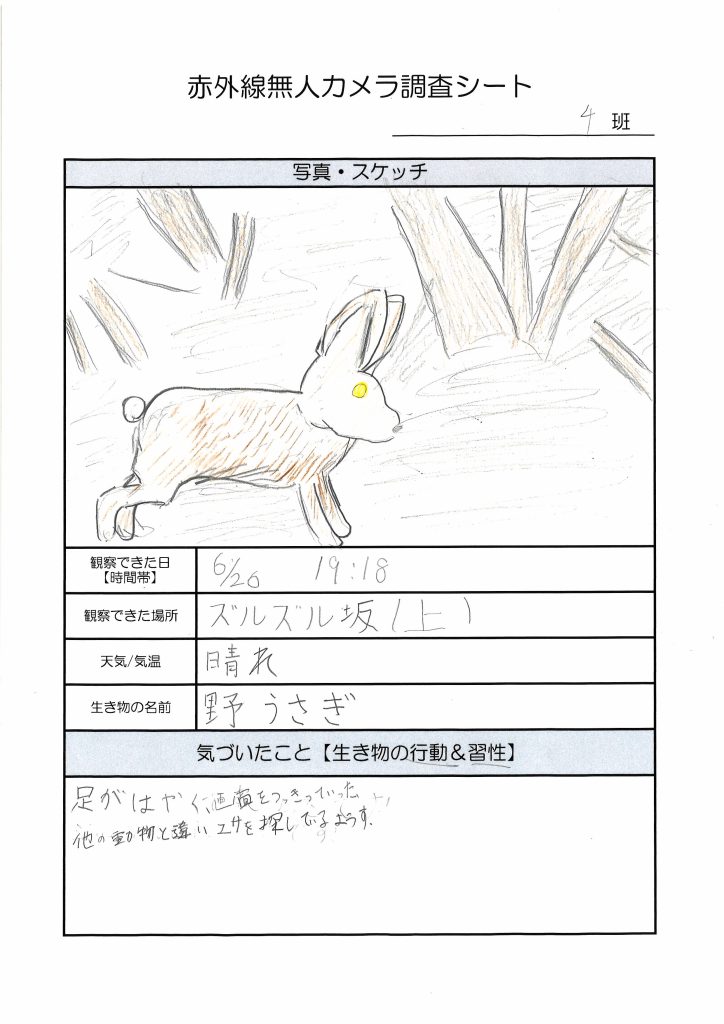 赤外線無人カメラ調査シート
4 班
写真・スケッチ
観察できた日
【時間帯】
6/26 19:18
観察できた場所
ズルズル坂(上)
天気/気温
晴れ
生き物の名前
野うさぎ
気づいたこと【生き物の行動&習性】
足がはやく画面をつっきっていった
他の動物と違いエサを探しているようす.